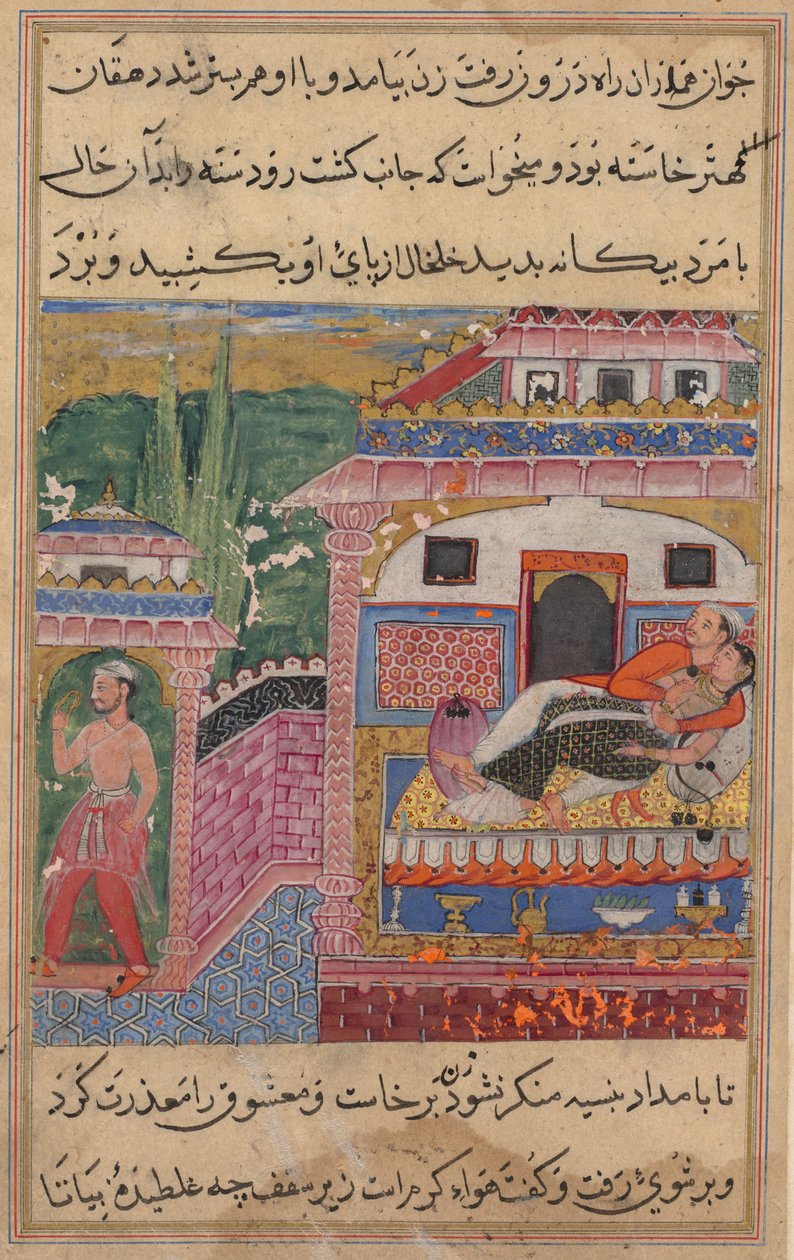 جوان هم ازان راه درون رفت زن بیامد و با او هم بستر شد دهقان
مهتر خاسته بود و میخواست که جانب کشت رود سنه را بدآن حال
با مرد بیکانه بدید خلخال از پائ او بکشید و بُرد
تا بامداد بنسیه منکر نشود زن برخاست و معشوق را معذرت کرد
و بر شوئ رفت و کفت هواء کرم است زیر سقف چه غلطیدۀ بیا تا